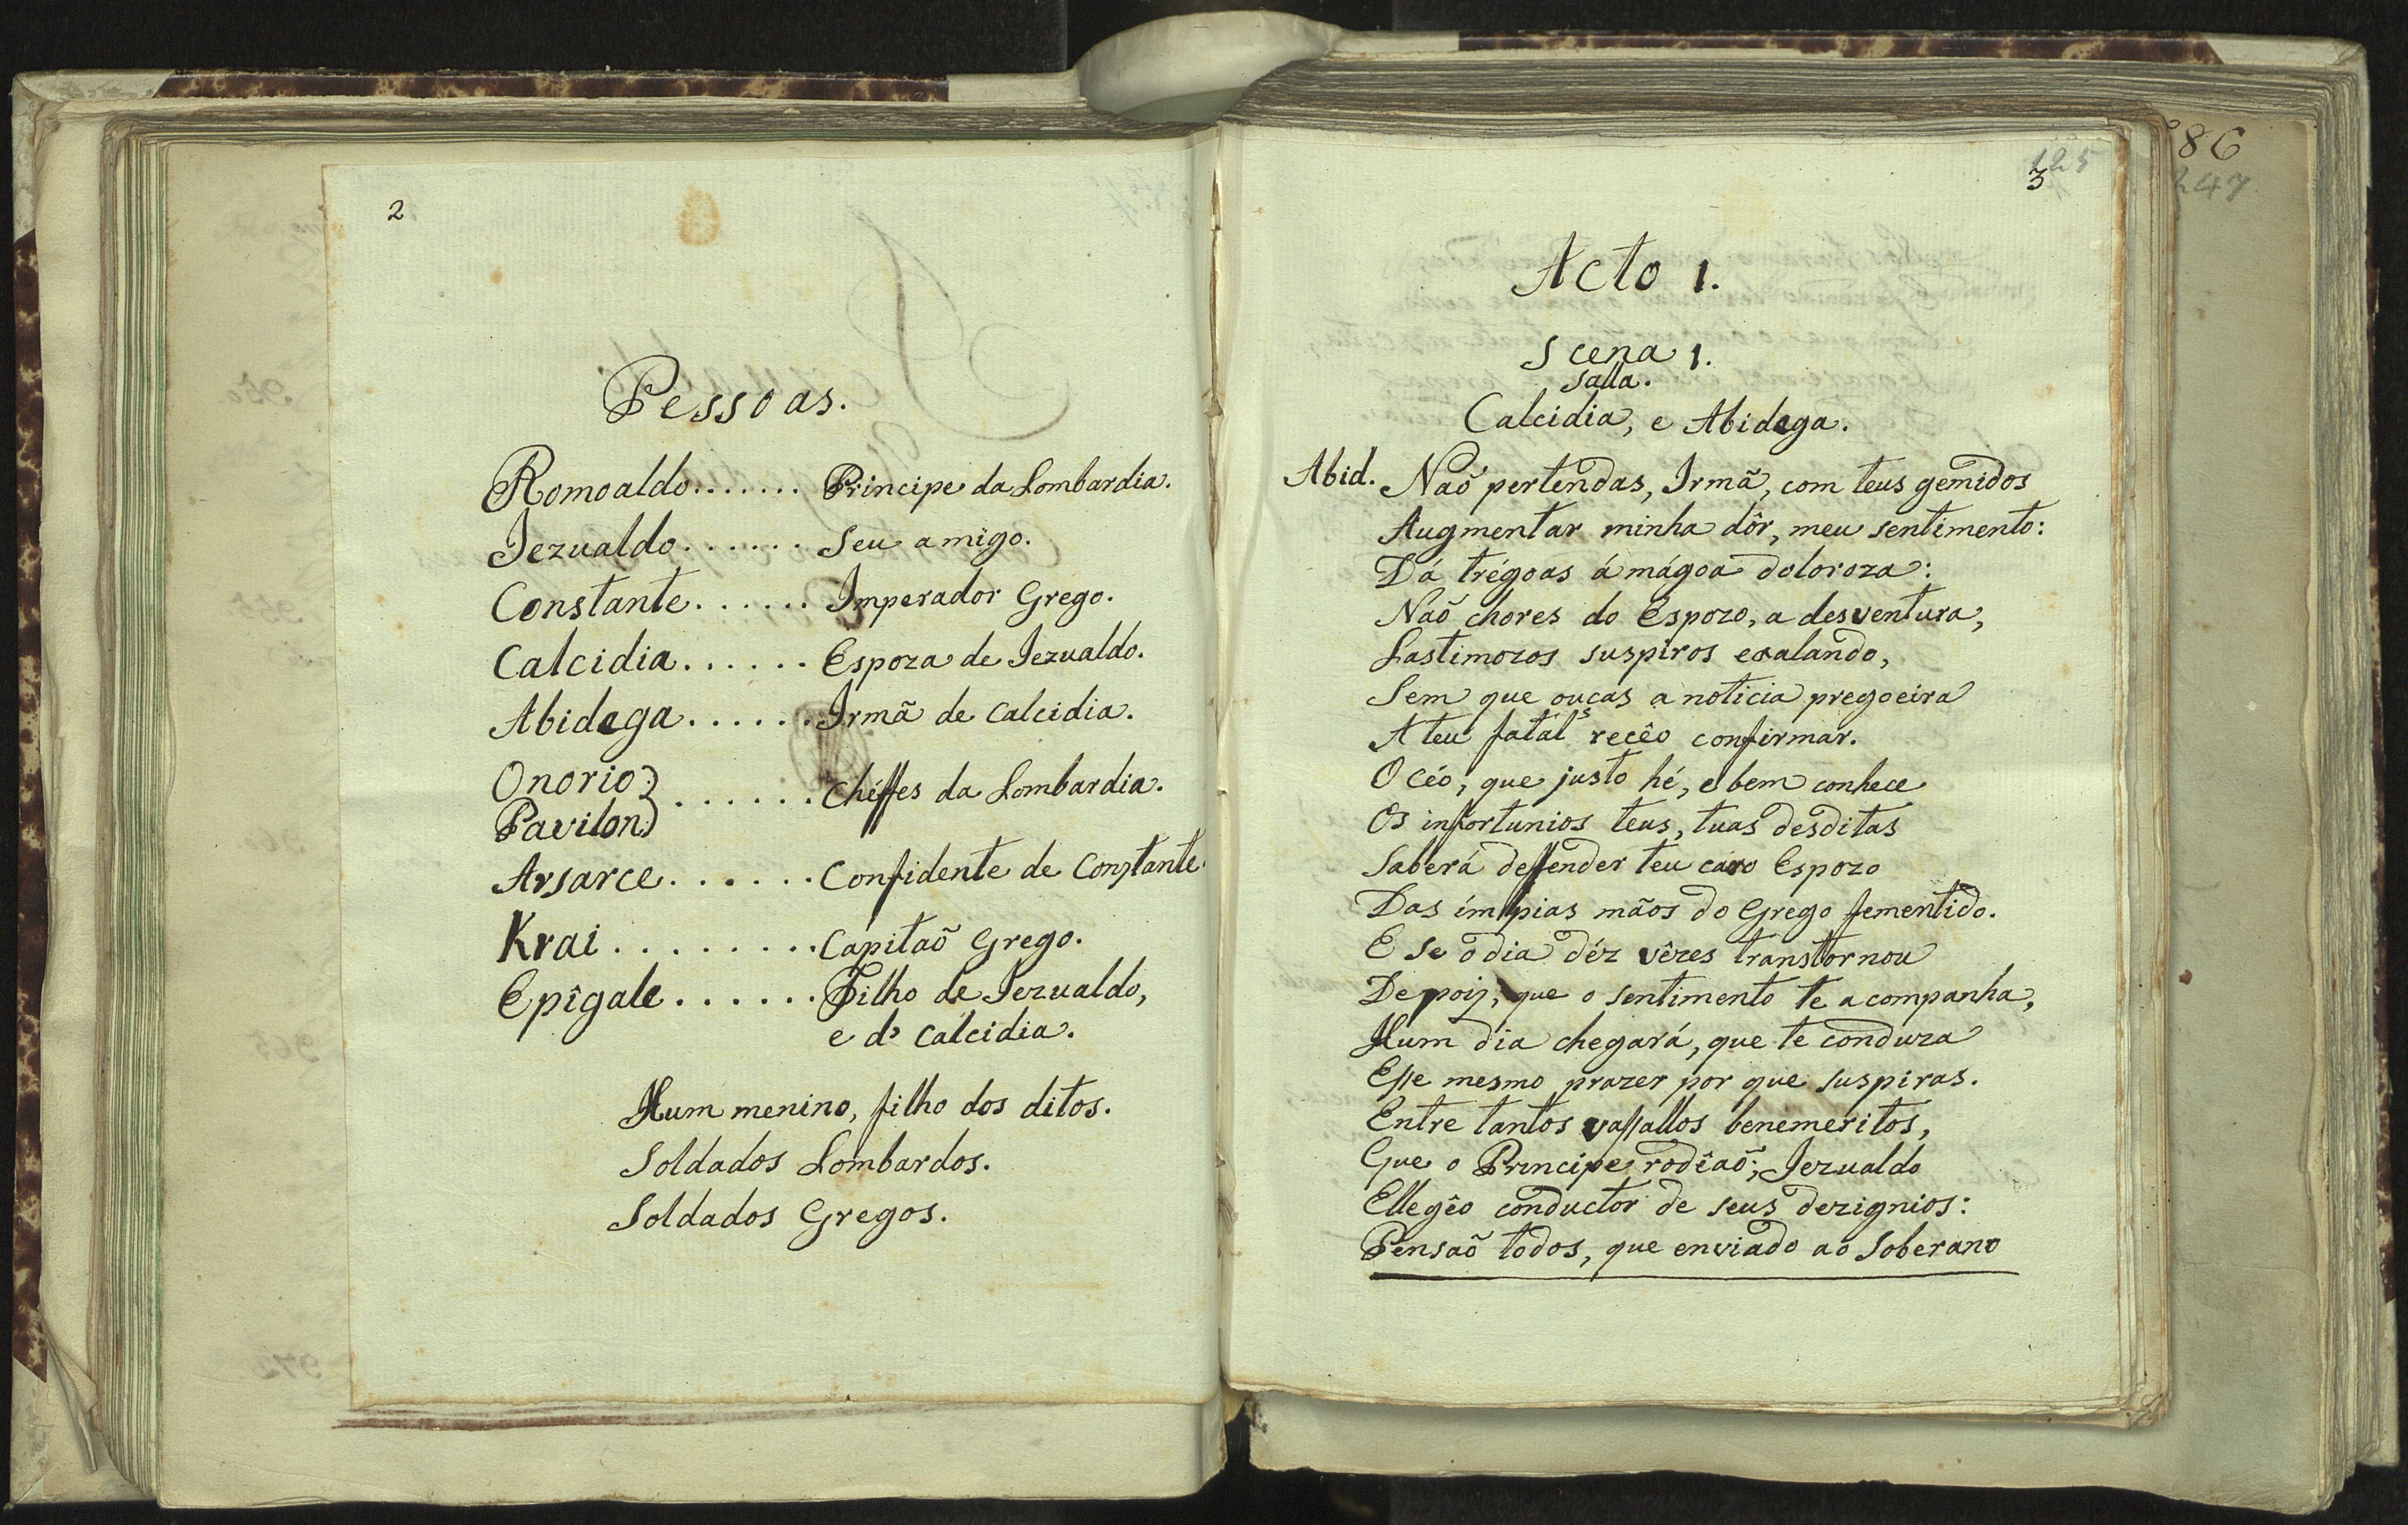 2
Pessoas.
Romoaldo....... Principe da Lombardia.
Jezualdo...... Seu amigo.
Constante...... Imperador Grego.
Calcidia...... Espoza de Jezualdo.
Abidega...... Irmã de Calcidia.
Onorio
Pavilon ...... Chéffes da Lombardia.
Arsarce...... Confidente de Constante.
Krai......... Capitaõ Grego.
Epîgale...... Filho de Jezualdo,
e de Calcidia.
Hum menino, filho dos ditos.
Soldados Lombardos.
Soldados Gregos.
125
3
Acto 1.
Scena 1.
Salla.
Calcidia, e Abidega.
Abid. Naõ pertendas, Irmã, com teus gemidos
Augmentar minha dôr, meu sentimento:
Dá trégoas á mágoa doloroza:
Naõ chores do Espozo, a desventura,
Lastimozos suspiros exalando,
Sem que ouças a noticia pregoeira
A teu fatál recêo confirmar.
O Céo, que justo hé, e bem conhece
Os infortunios teus, tuas desditas
Saberá deffender teu caro Espozo
Das ímpias mãos do Grego fementido.
E se o dia déz vêzes transtornou
Depois, que o sentimento te acompanha,
Hum dia chegará, que te conduza
Esse mesmo prazer por que suspiras.
Entre tantos vassallos benemeritos,
Que o Principe rodêaõ; Jezualdo
Ellegêo conductor de seus dezignios:
Pensaõ todos, que enviado ao Soberano
86
247